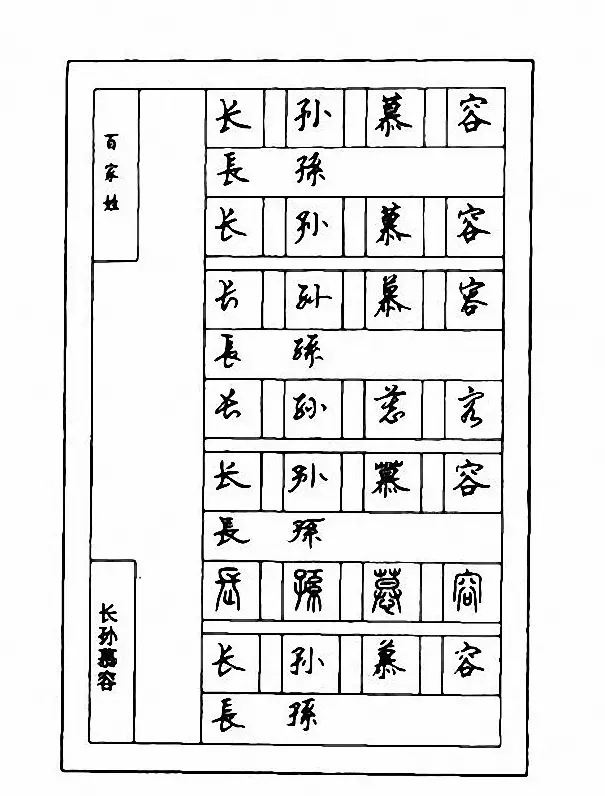 百家姓
长孙慕容
長孫
长孙慕容
长孙慕容
長孫
长孙慕容
长孙慕容
長孫
長孫慕容
长孙慕容
長孫
长孙慕容